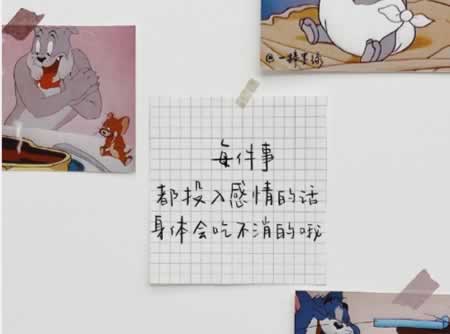 @一棒墨绿
每件事
都投入感情的话
身体会吃不消的哦